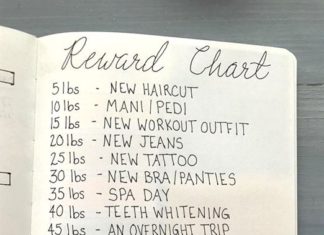 Reward Chart
5lbs - NEW HAIRCUT
10lbs - MANI/PEDI
15lbs - NEW WORKOUT OUTFIT
20lbs - NEW JEANS
25lbs - NEW TATTOO
30lbs - NEW BRA/PANTIES
35lbs - SPA DAY
40lbs - TEETH WHITENING
45lbs - AN OVERNIGHT TRIP